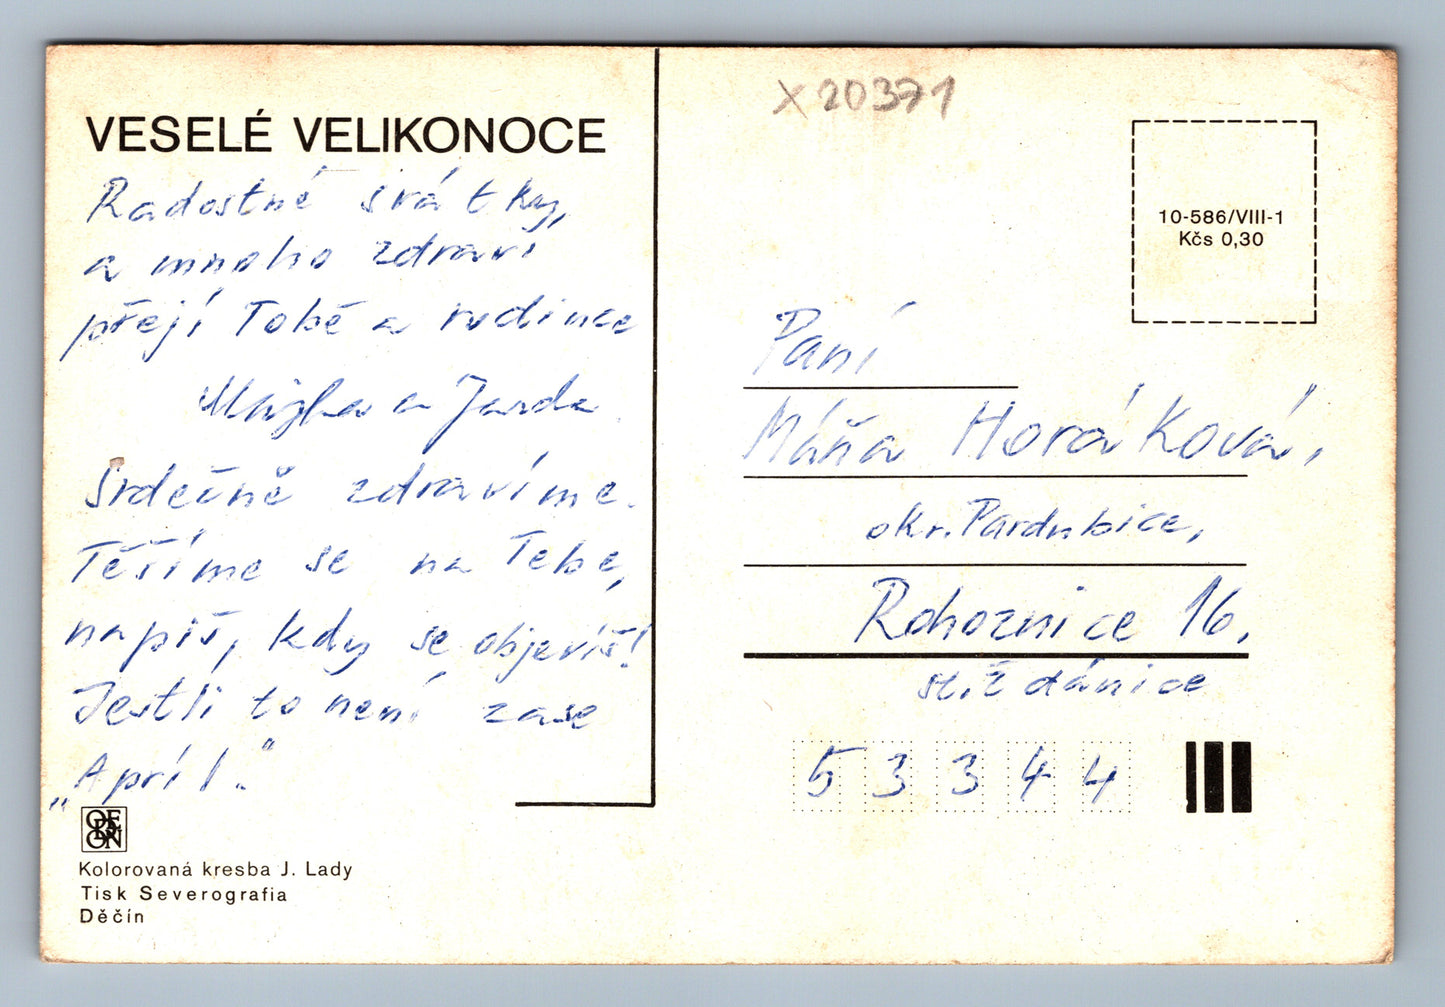 VESELÉ VELIKONOCE
Radostné svátky,
a mnoho zdraví
přejí Tobě a rodince
a Jarda
Srdečně zdravíme.
Těšíme se na Tebe,
napiš, kdy se objevíš!
Jestli to není zase
„Apríl."
ODEON
Kolorovaná kresba J. Lady
Tisk Severografia
Děčín
X 20371
10-586/VIII-1
Kčs 0,30
Paní
Máňa Horáková,
okr. Pardubice,
Rohoznice 16,
53344